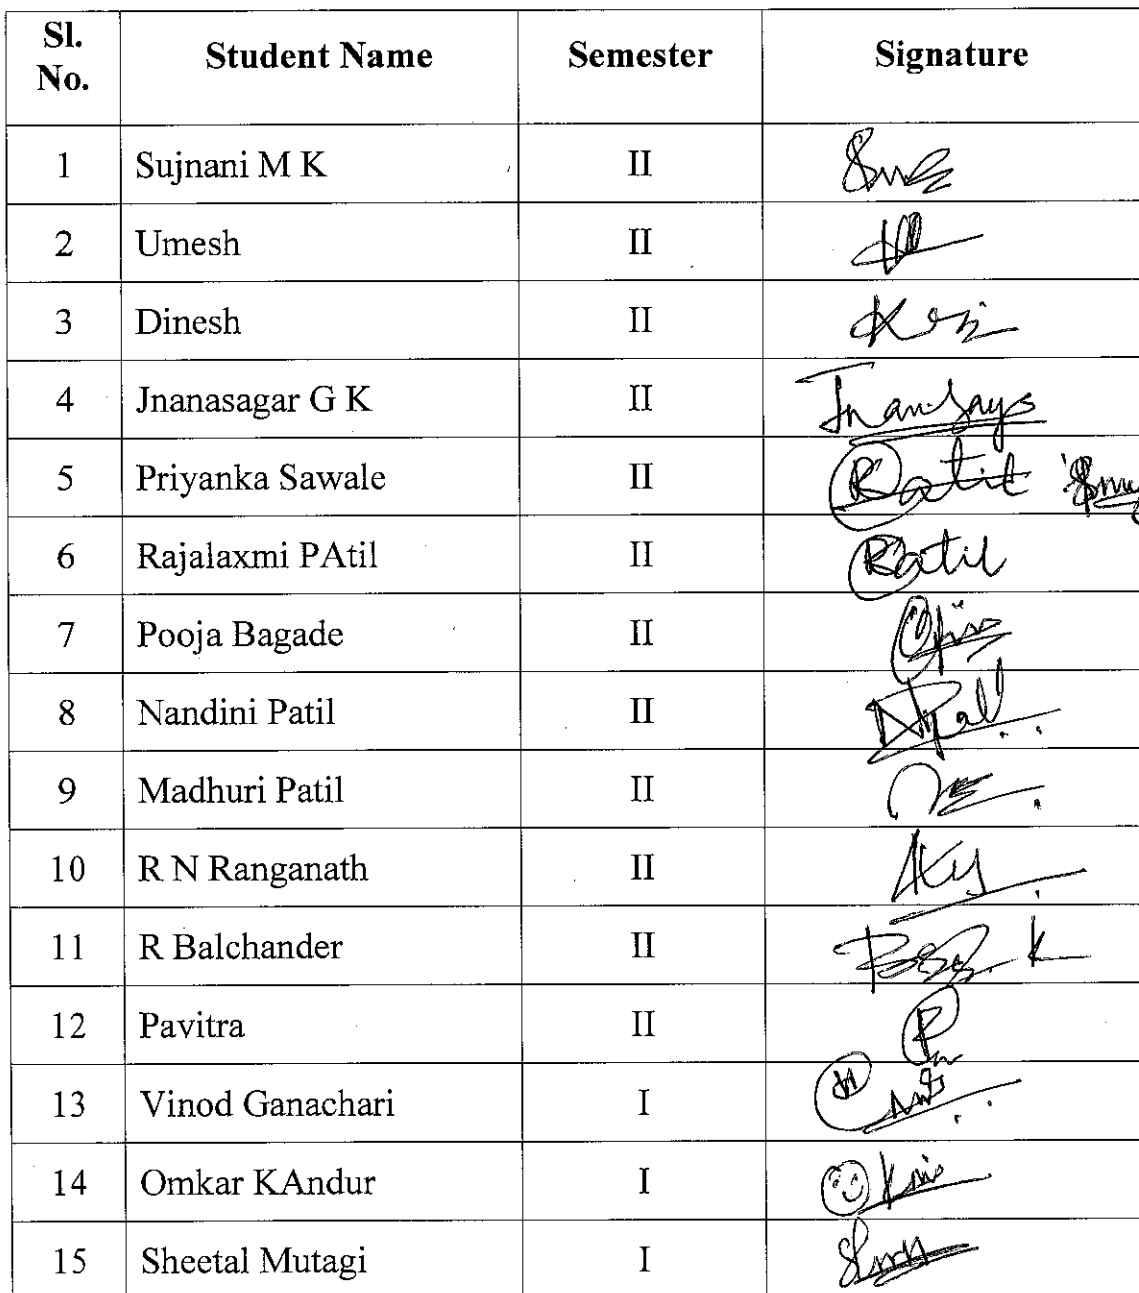 Sl. No. Student Name Semester Signature
1 Sujnani M K II
2 Umesh II
3 Dinesh II
4 Jnanasagar G K II
5 Priyanka Sawale II Patil
6 Rajalaxmi PAtil II Patil
7 Pooja Bagade II
8 Nandini Patil II
9 Madhuri Patil II
10 R N Ranganath II
11 R Balchander II
12 Pavitra II
13 Vinod Ganachari I
14 Omkar KAndur I
15 Sheetal Mutagi I